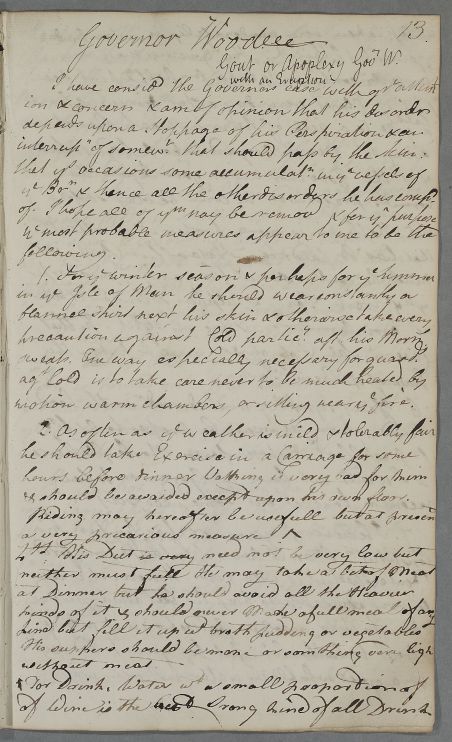 13.
Governor Woodee
Gout or Apoplexy Govr W.
with an Eruption
I have consid the Governors case with gt attent
ion & concern & am of opinion that his disorder
depends upon a Stoppage of his Perspiration & an
interrupn of somewt that should pass by the skin:
that ys occasions some accumulatn in ye vessels of
ye Brn & hence all the other disorders he has compd
of. I hope all of ym may be remov & for ys purpose
ye most probable measures appear to me to be the
following
1. For ye winter season & perhaps for ye summer
in ye Isle of Man he should wear constantly a
flannel shirt next his skin & otherwise take every
precaution against Cold particr aft his Morng
sweats. The way especially necessary for guardg
agt Cold is to take care never to be much heated by
motion warm chambers, or sitting near ye fire.
2. As often as ye weather is mild & tolerably fair
he should take Exercise in a Carriage for some
hours before dinner Walking is very bad for him
& should be avoided except upon his own floor.
Riding may hereafter be usefull but at present
a very precarious measure ^
His Diet is very need not be very low but
neither must full He may take a bit of Meat
at Dinner but he should avoid all the Heavier
kinds of it & should never Make a full meal of any
kind but fill it up wt broth pudding or vegetables
His suppers should be none or something very light
without meat
For Drink, Water wt a small proportion of
of Wine is the strong kind of all Drink